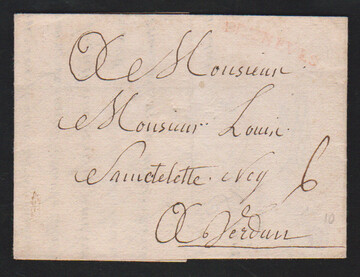 A Monsieur
Monsieur Louis
Sainctelette. Ney 6
A Verdun
10